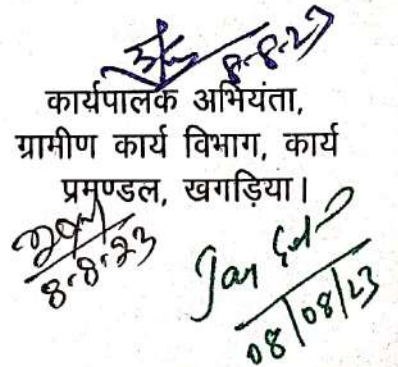 8-8-23
कार्यपालक अभियंता,
ग्रामीण कार्य विभाग, कार्य
प्रमण्डल, खगड़िया।
8-8-23
08/08/23